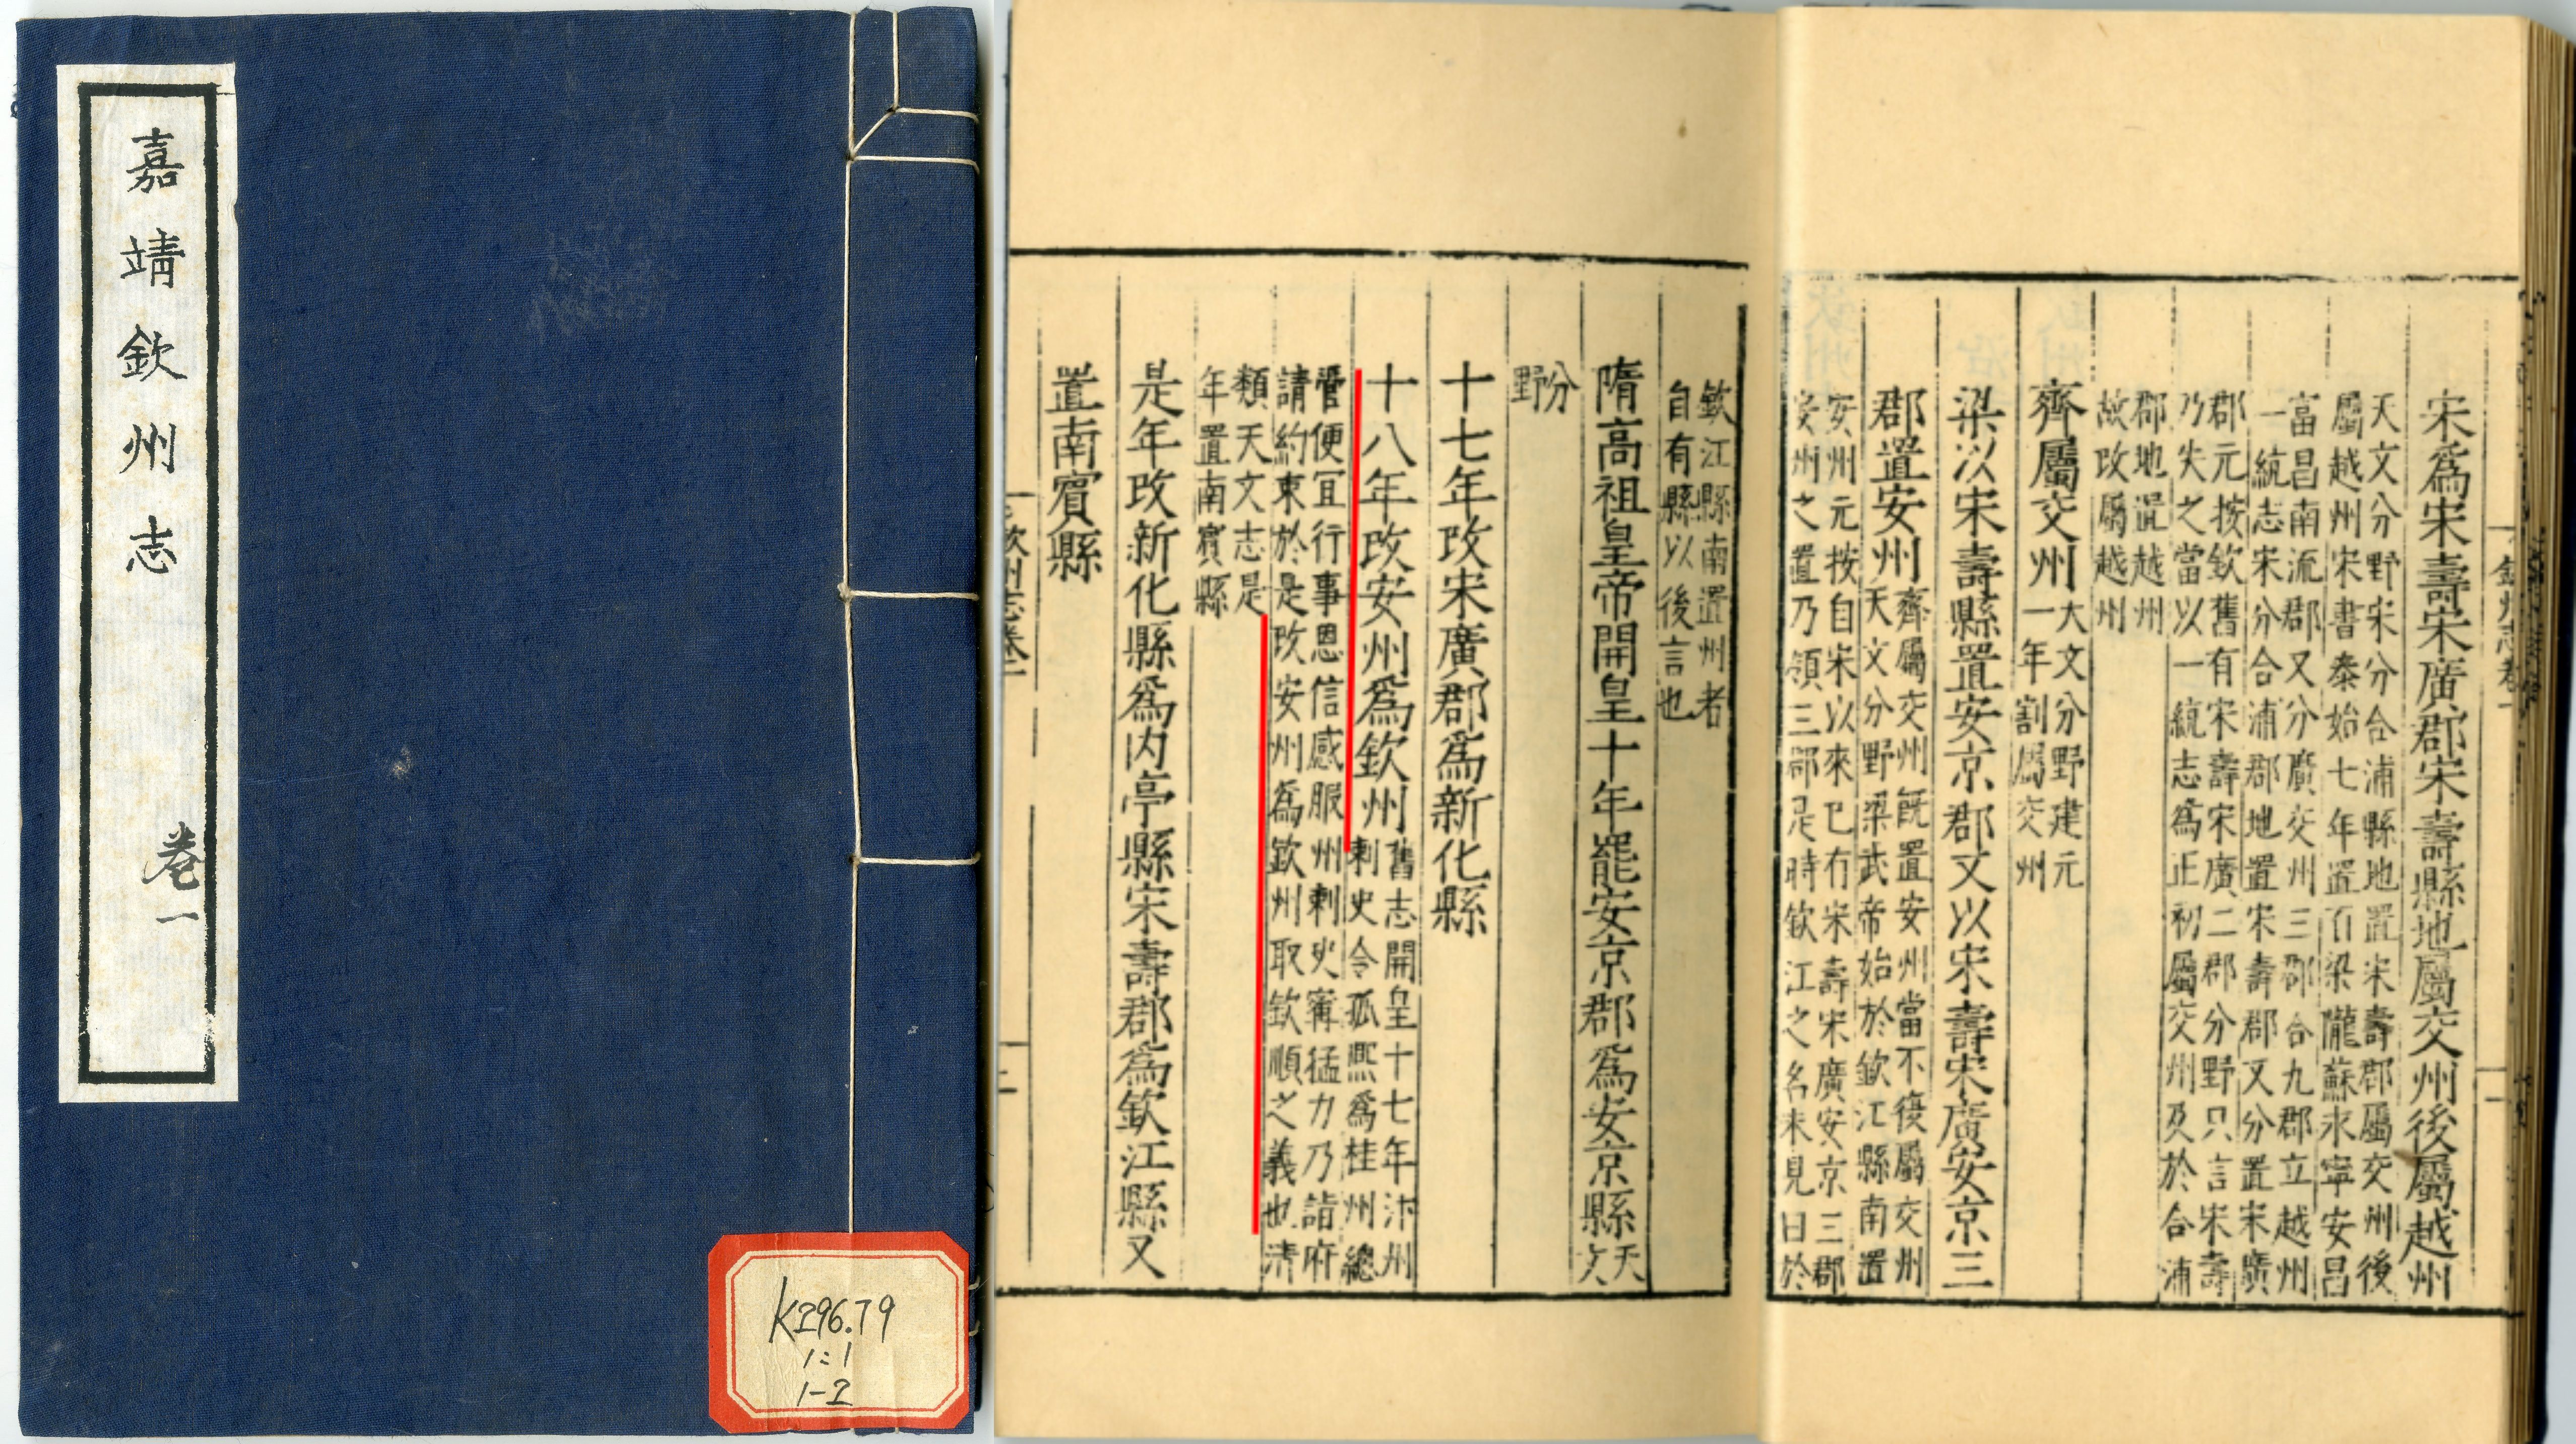 嘉靖欽州志
卷一
K296.79
1:1
1-2
欽州志卷一
一
宋爲宋壽宋廣郡宋壽縣地屬交州後屬越州
天文分野宋分合浦縣地置宋壽郡屬交州後
屬越州宋書泰始七年置百梁隴蘇永寧安昌
富昌南流郡又分廣交州三郡合九郡立越州
一統志宋分合浦郡地置宋壽郡又分置宋廣
郡元按欽舊有宋壽宋廣二郡分野只言宋壽
乃失之當以一統志爲正初屬交州及於合浦
郡地置越州
故改屬越州
齊屬交州
大文分野建元
一年割屬交州
梁以宋壽縣置安京郡又以宋壽宋廣安京三
郡置安州
齊屬交州既置安州當不復屬交州
天文分野梁武帝始於欽江縣南置
安州元按自宋以來已有宋壽宋廣安京三郡
安州之置乃領三郡是時欽江之名未見曰於
欽江縣南置州者
自有縣以後言也
隋高祖皇帝開皇十年罷安京郡爲安京縣
天
文
分
野
十七年改宋廣郡爲新化縣
十八年改安州爲欽州
舊志開皇十七年汴州
刺史令孤熙爲桂州總
管便宜行事恩信感服州刺史甯猛力乃詣府
請約束於是改安州爲欽州取欽順之義也清
類天文志是
年置南賓縣
是年改新化縣爲內亭縣宋壽郡爲欽江縣又
置南賓縣